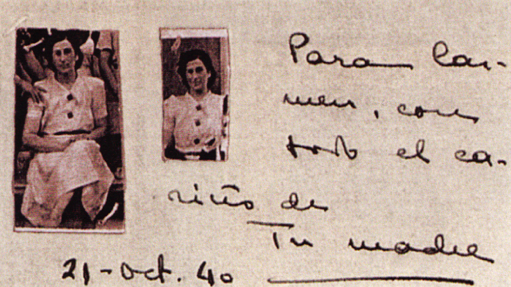 Para Car-
men, con
todo el ca-
riño de
Tu madre
21-Oct. 40